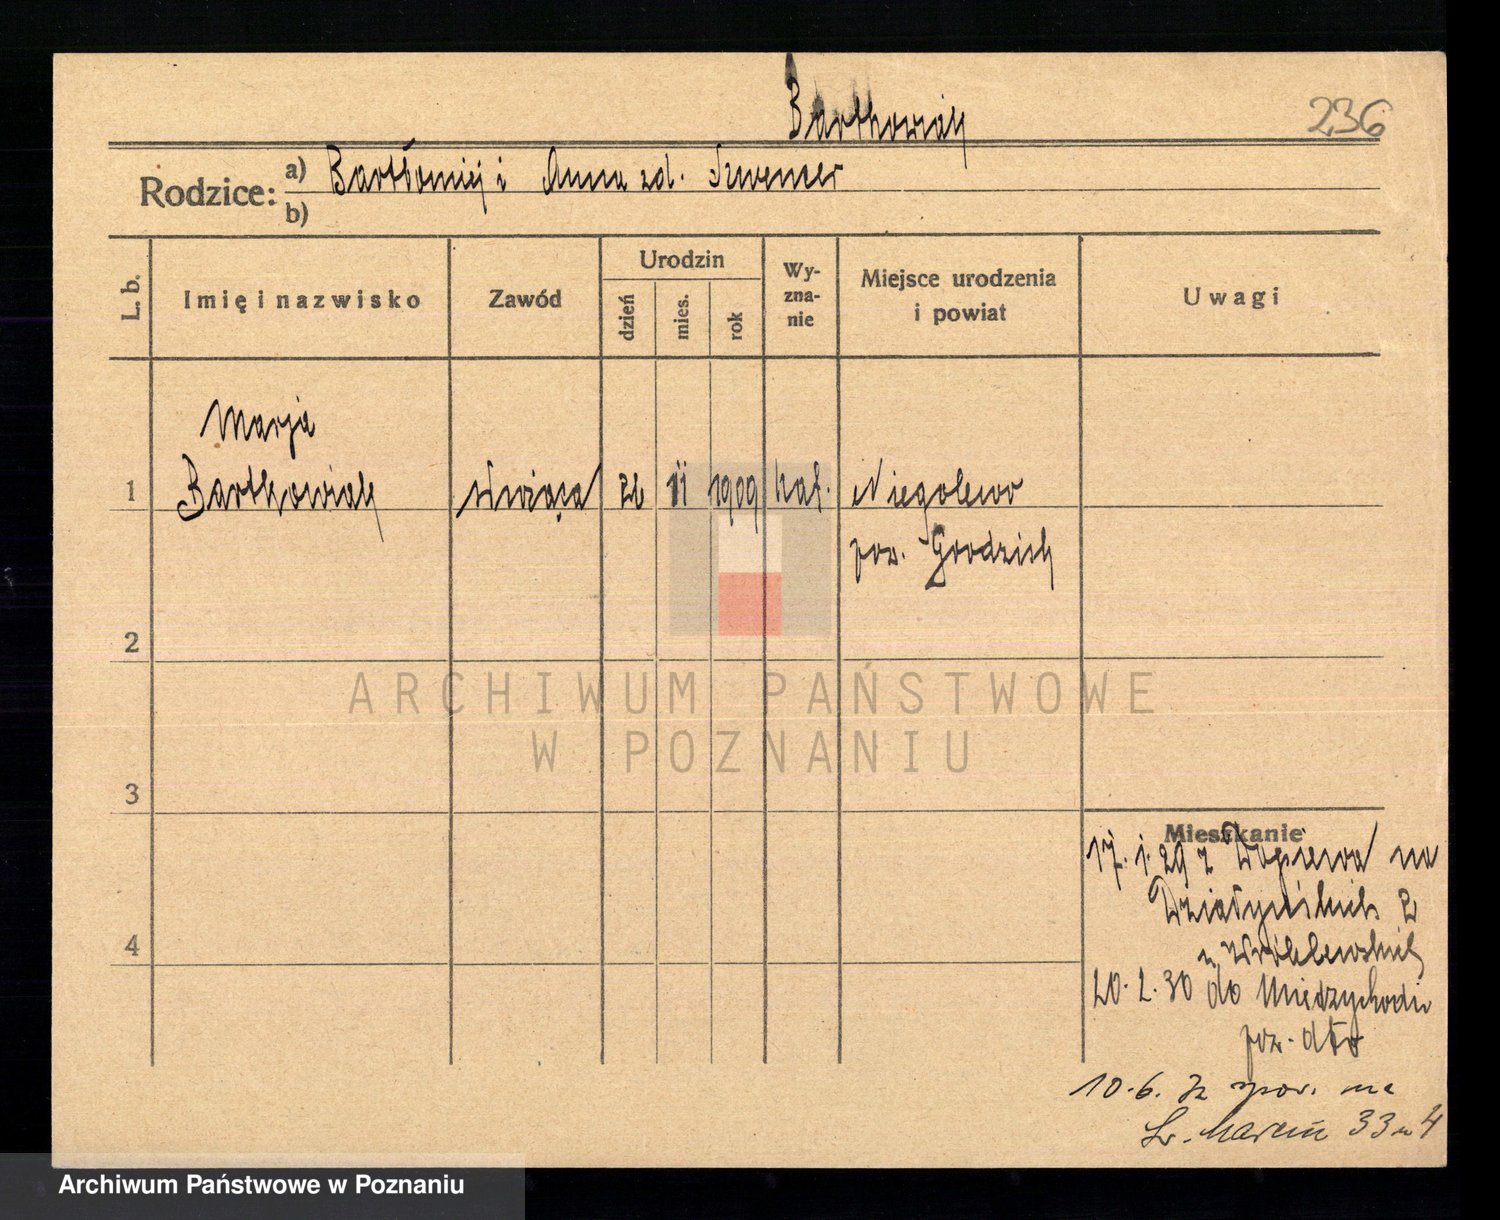 Bartkowiak
236
Rodzice: a) Bartłomiej i Anna zd.
b)
L. b.
Imię i nazwisko
Zawód
Urodzin
dzień
mies.
rok
Wy-
zna-
nie
Miejsce urodzenia
i powiat
Uwagi
1
Marja
Bartkowiak
służąca
22
11
1909
kat.
Niegolewo
pow. Grodzisk
2
3
4
Mieszkanie
17. 1. 29 z Dopiewa na
Działyńskich 2
u Wróblewskich
20. 2. 30 do Międzychodu
pow. dto
10. 6. 32 spow. na
św. Marcin 33 m 4
ARCHIWUM PAŃSTWOWE
W POZNANIU
Archiwum Państwowe w Poznaniu